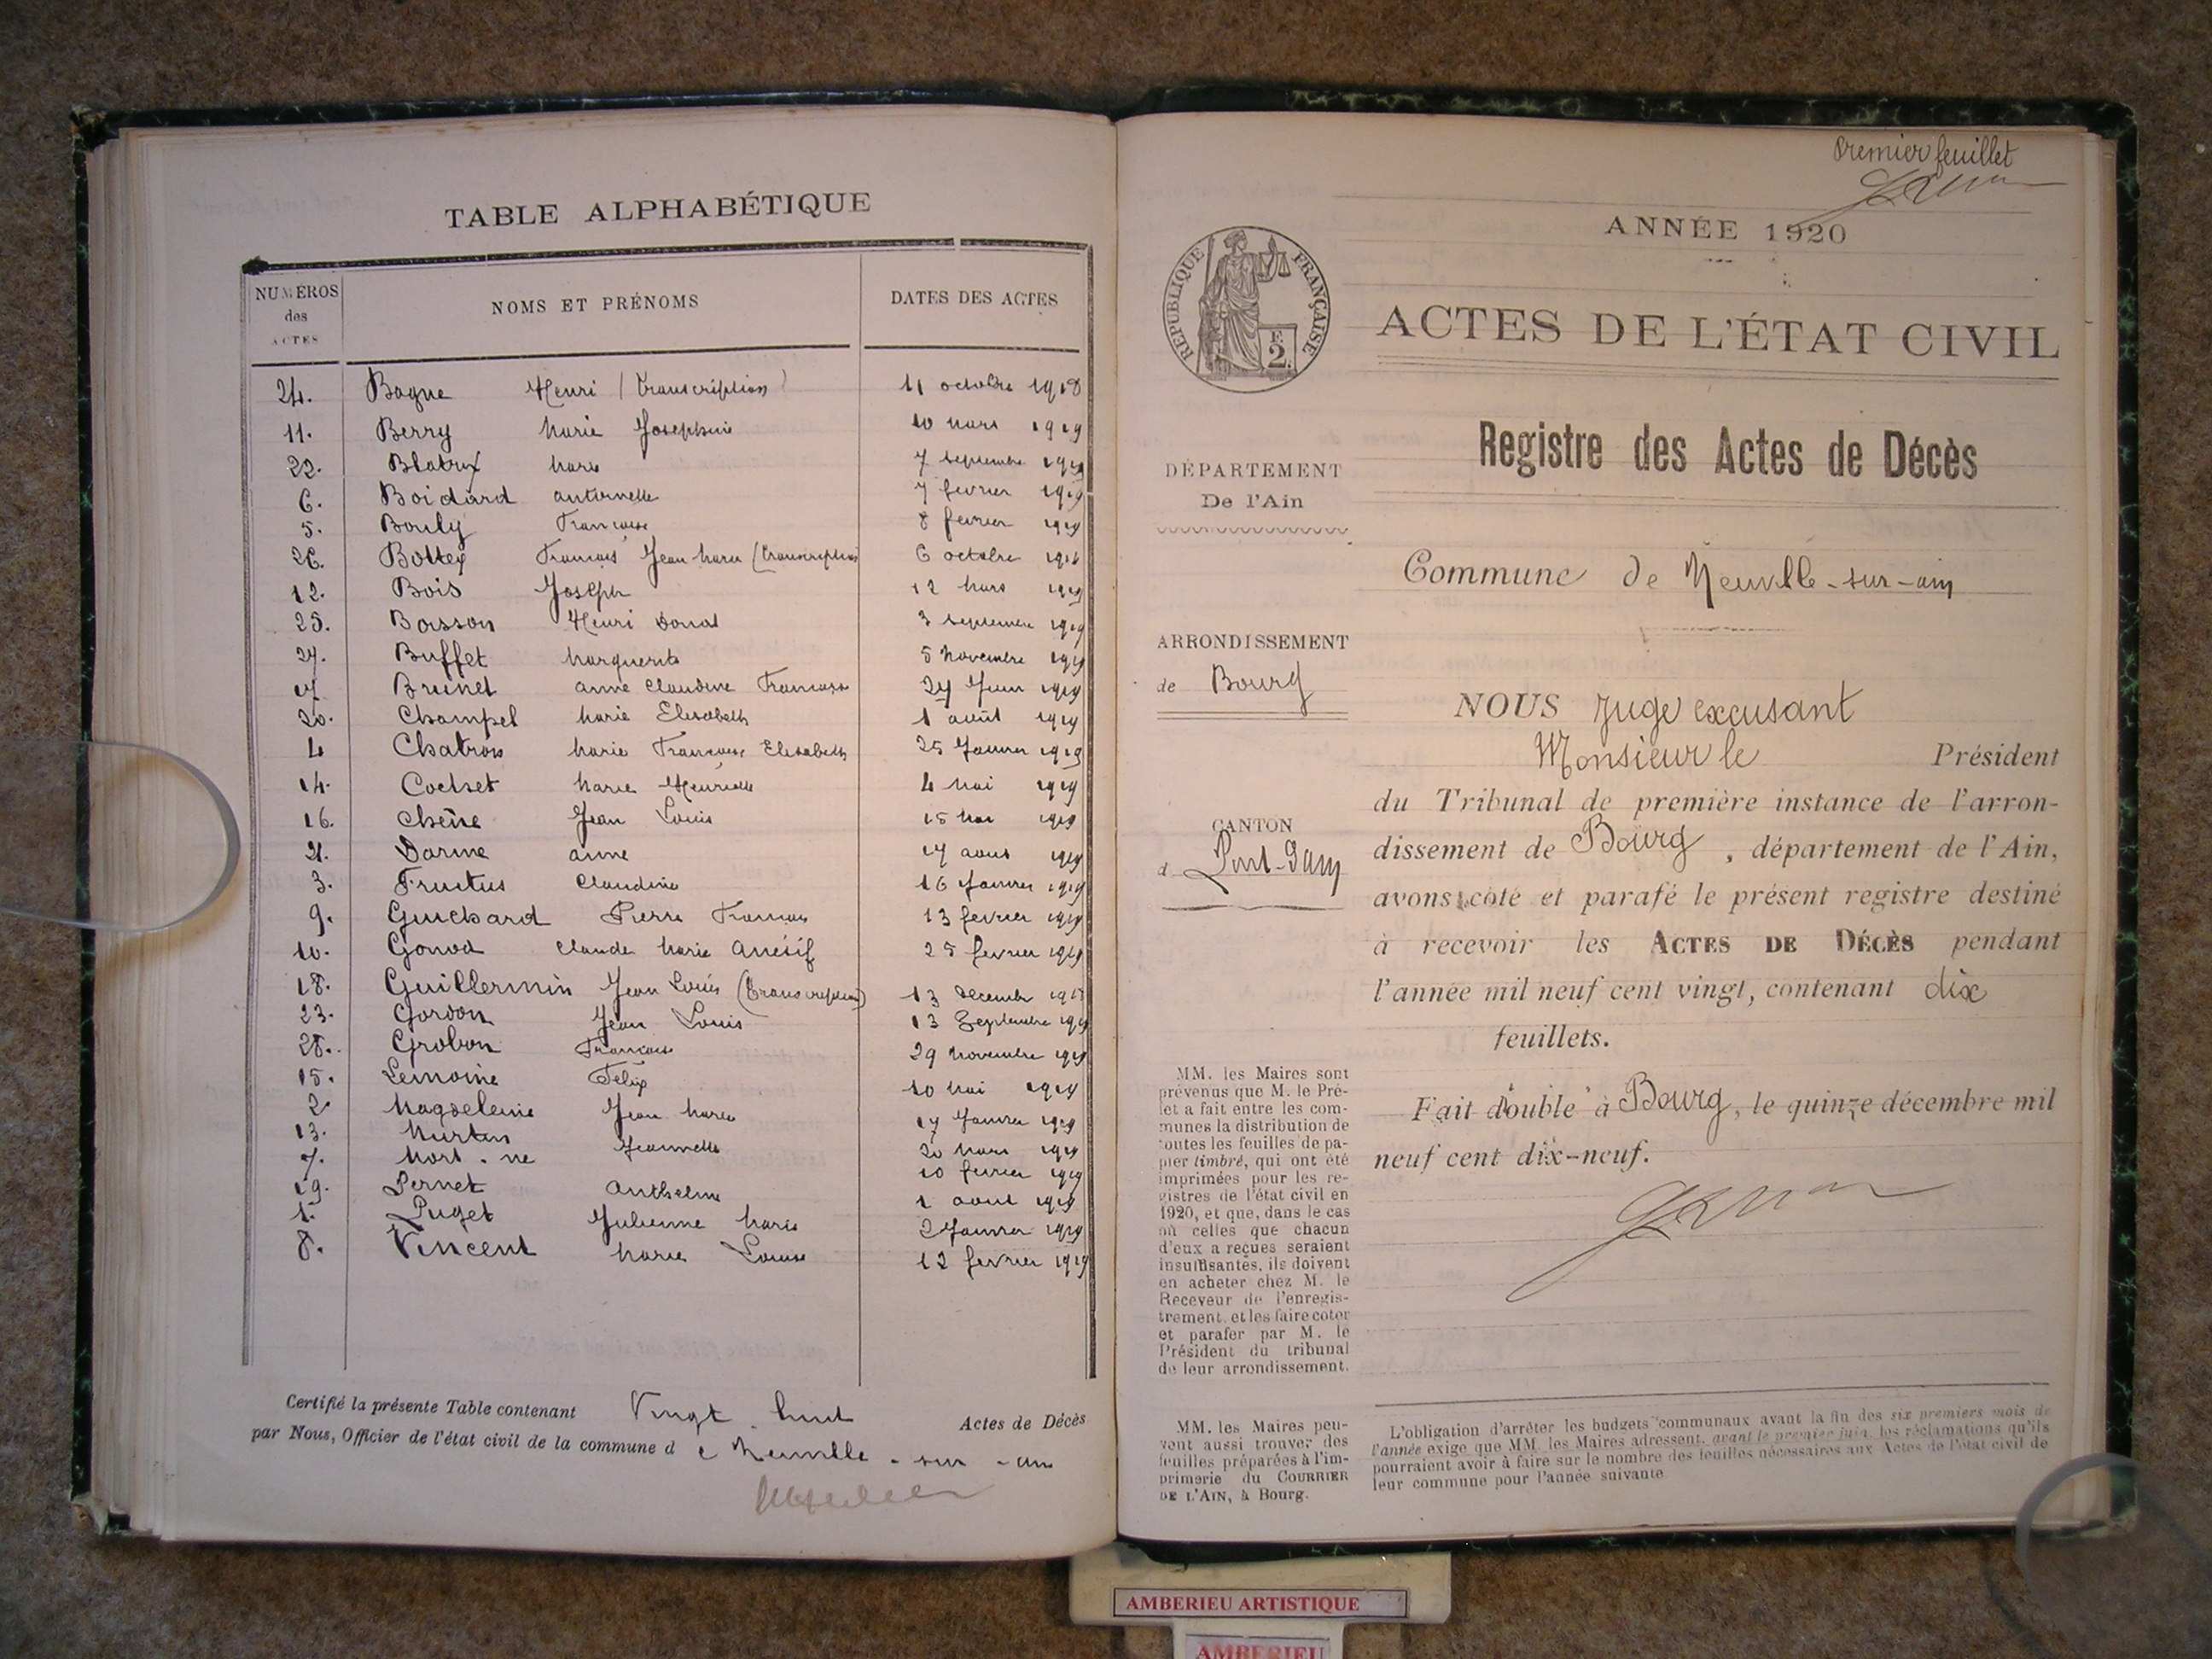 TABLE ALPHABÉTIQUE
NUMÉROS des ACTES
NOMS ET PRÉNOMS
DATES DES ACTES
24. Bogue Henri (transcription) 11 octobre 1918
11. Berry Marie Josephine 10 mars 1919
22. Blatrix Marie 7 septembre 1919
6. Boidard antoinette 7 fevrier 1919
5. Bouly Francoise 8 fevrier 1919
26. Bottex Francois Jean Marie (transcription) 6 octobre
12. Bois Joseph 12 Mars 1919
25. Bosson Henri Donat 3 septembre 1919
27. Buffet Marguerite 5 Novembre 1919
17. Brunet anne Claudine Francoise 24 Juin 1919
20. Champel Marie Elisabeth 1 août 1919
4 Chatron Marie Francoise Elisabeth 25 Janvier 1919
14. Cochet Marie Henriette 4 Mai 1919
16. Chêne Jean Louis 15 Mai 1919
21. Darme anne 17 aout 1919
3. Fructus Claudine 16 Janvier 1919
9. Guichard Pierre Francois 13 fevrier 1919
10. Gonod Claude Marie 25 fevrier 1919
18. Guillermin Jean Louis (transcription) 13 décembre
23. Gordon Jean Louis 13 Septembre 1919
28. Grobon Francois 29 Novembre 1919
15. Lemoine Félix 10 Mai 1919
2 Magdeleine Jean Marie 17 Janvier 1919
13. Martin Jeannette 20 Mars 1919
7. Mort-né 10 fevrier 1919
19. Pernet anthelme 1 aout 1919
1. Puget Julienne Marie 2 Janvier 1919
8. Vincent Marie Louise 12 fevrier 1919
Certifié la présente Table contenant Vingt-huit Actes de Décès
par Nous, Officier de l'état civil de la commune d e Neuville-sur-ain
Premier feuillet
ANNÉE 1920
RÉPUBLIQUE FRANÇAISE
F. 2.
ACTES DE L'ÉTAT CIVIL
Registre des Actes de Décès
DÉPARTEMENT
De l'Ain
Commune de Neuville-sur-ain
ARRONDISSEMENT
de Bourg
CANTON
d Pont-d'ain
NOUS Juge excusant
Monsieur le Président
du Tribunal de première instance de l'arron-
dissement de Bourg, département de l'Ain,
avons coté et parafé le présent registre destiné
à recevoir les ACTES DE DÉCÈS pendant
l'année mil neuf cent vingt, contenant dix
feuillets.
Fait double à Bourg, le quinze décembre mil
neuf cent dix-neuf.
MM. les Maires sont
prévenus que M. le Pré-
fet a fait entre les com-
munes la distribution de
toutes les feuilles de pa-
pier timbré, qui ont été
imprimées pour les re-
gistres de l'état civil en
1920, et que, dans le cas
où celles que chacun
d'eux a reçues seraient
insuffisantes, ils doivent
en acheter chez M. le
Receveur de l'enregis-
trement, et les faire coter
et parafer par M. le
Président du tribunal
de leur arrondissement.
MM. les Maires peu-
vent aussi trouver des
feuilles préparées à l'im-
primerie du COURRIER
DE L'AIN, à Bourg.
L'obligation d'arrêter les budgets communaux avant la fin des six premiers mois de
l'année exige que MM. les Maires adressent, avant le premier juin, les réclamations qu'ils
pourraient avoir à faire sur le nombre des feuilles nécessaires aux Actes de l'état civil de
leur commune pour l'année suivante
AMBERIEU ARTISTIQUE
AMBERIEU